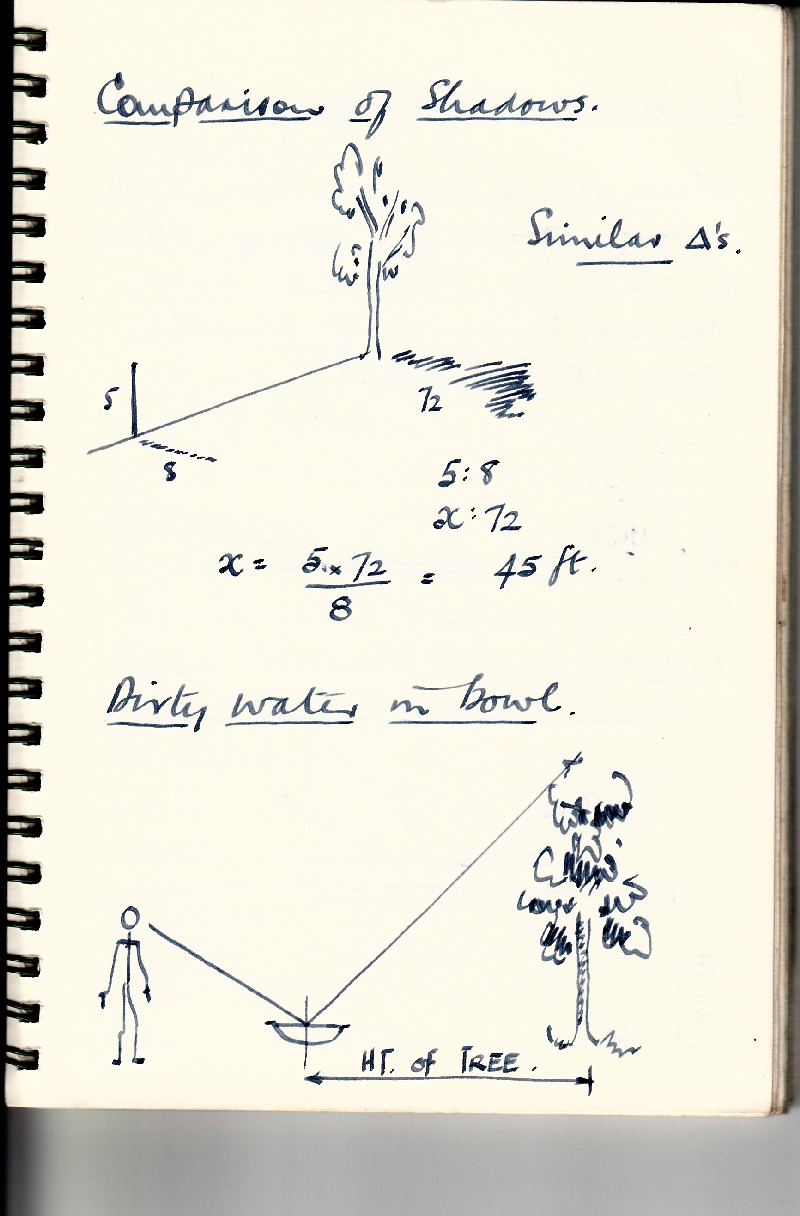 Comparison of Shadows.
Similar Δ's.
5
72
8
5:8
x:72
x = 5 x 72 = 45 ft.
8
Dirty water in bowl.
HT. of TREE.